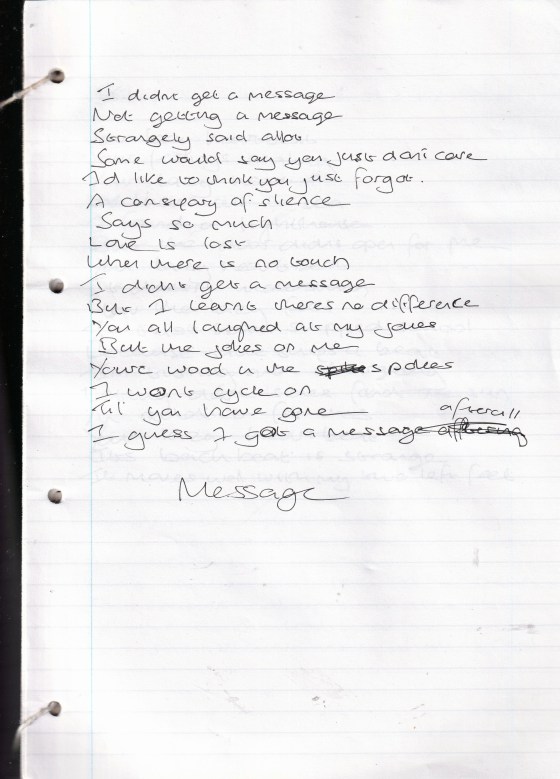 I didnt get a message
Not getting a message
Strangely said allot
Some would say you just dont care
I'd like to think you just forgot.
A conspiracy of silence
Says so much
Love is lost
When there is no touch
I didnt get a message
But I learnt theres no difference
You all laughed at my jokes
But the jokes on me
Youre wood in the spokes
I wont cycle on
Til you have gone
afterall
I guess I got a message
Message